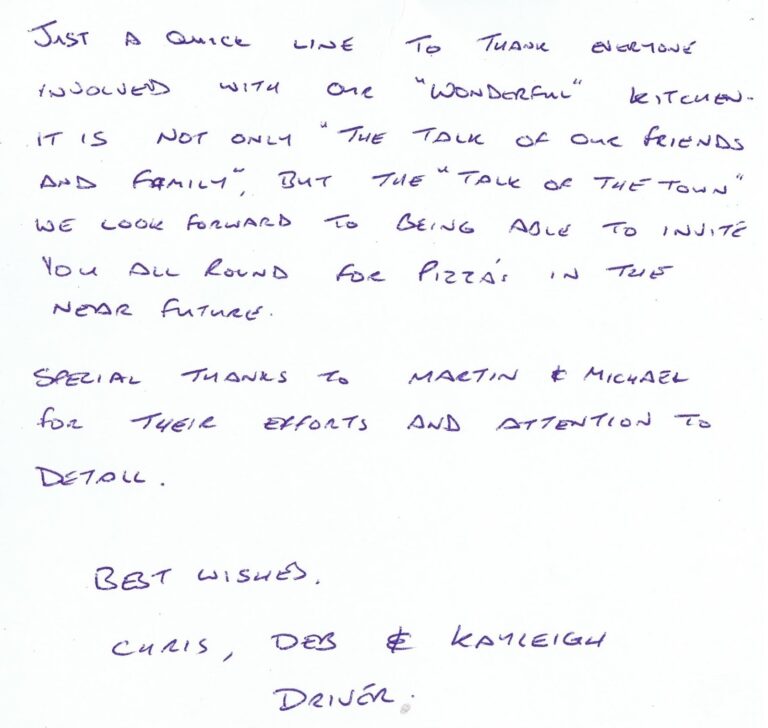 JUST A QUICK LINE TO THANK EVERYONE
INVOLVED WITH OUR "WONDERFUL" KITCHEN.
IT IS NOT ONLY "THE TALK OF OUR FRIENDS
AND FAMILY", BUT THE "TALK OF THE TOWN"
WE LOOK FORWARD TO BEING ABLE TO INVITE
YOU ALL ROUND FOR PIZZA'S IN THE
NEAR FUTURE.
SPECIAL THANKS TO MARTIN & MICHAEL
FOR THEIR EFFORTS AND ATTENTION TO
DETAIL.
BEST WISHES.
CHRIS, DEB & KAYLEIGH
DRIVER.